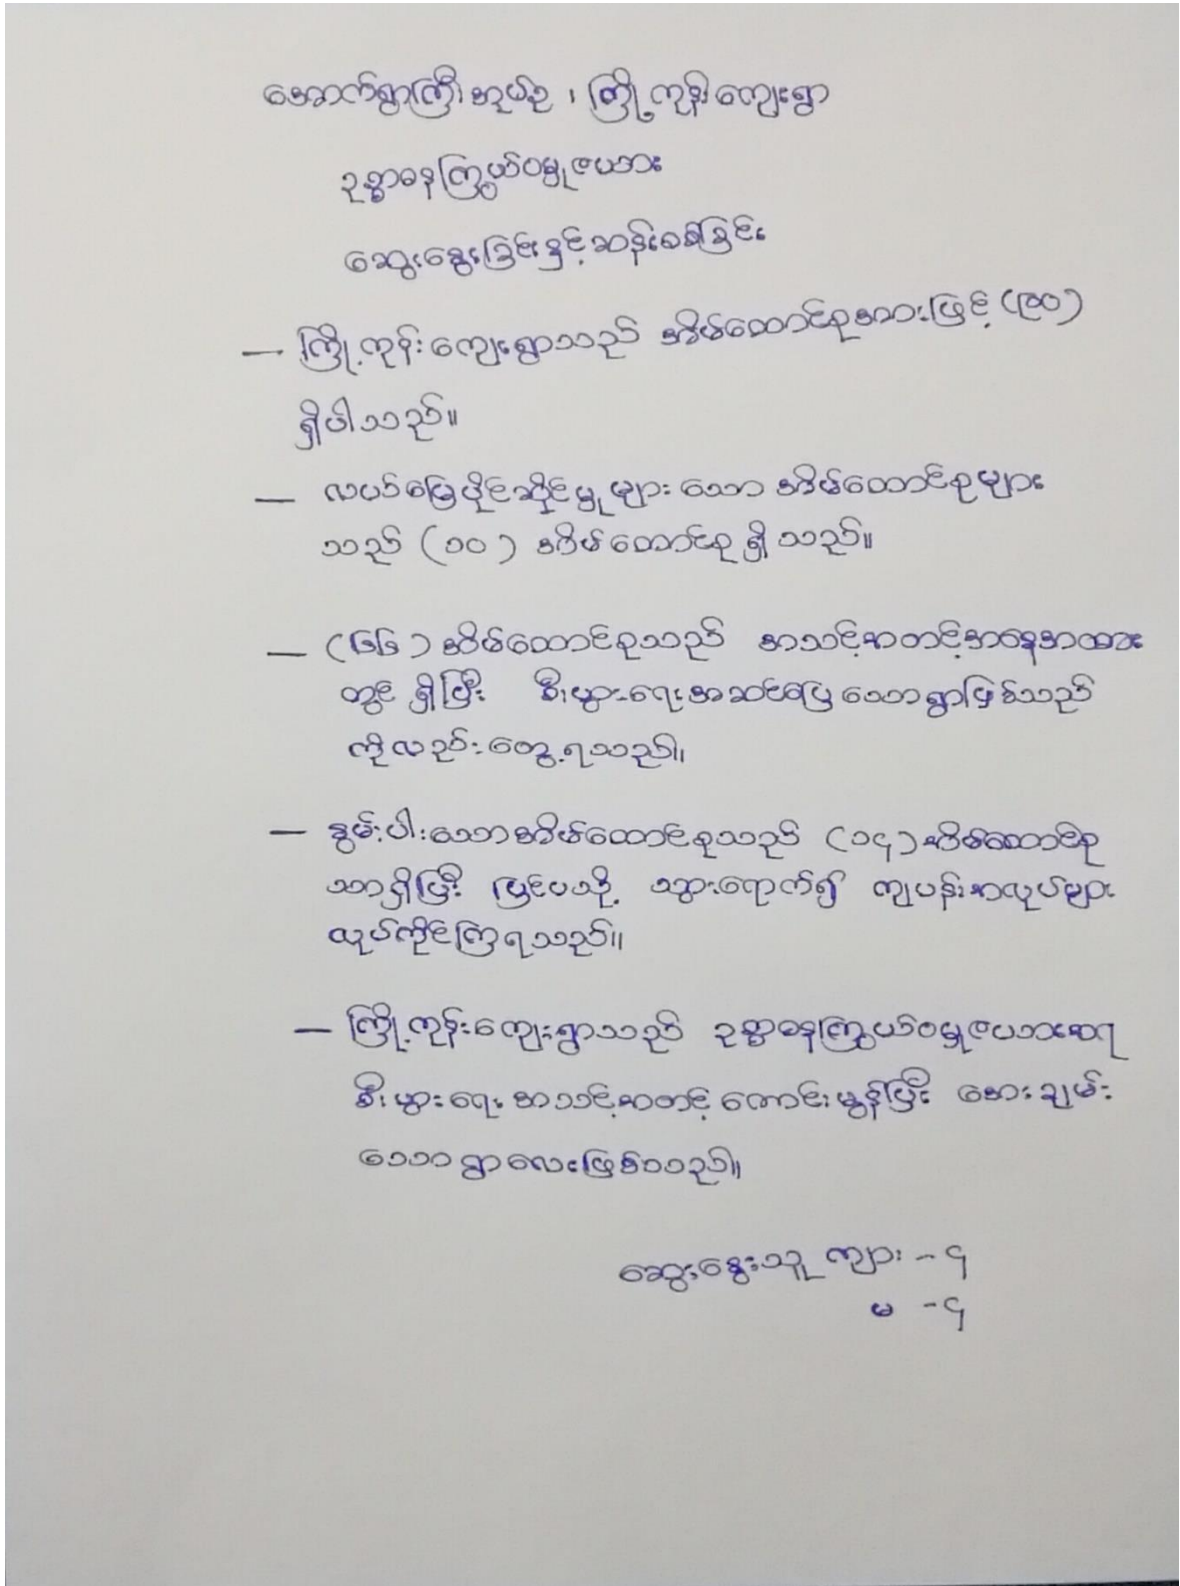 အောက်ရွာကြီးအုပ်စု၊ ကြို့ကုန်းကျေးရွာ
ဥစ္စာဓနကြွယ်ဝမှုဇယား
ဆွေးနွေးခြင်းနှင့်ဆန်းစစ်ခြင်း
— ကြို့ကုန်းကျေးရွာသည် အိမ်ထောင်စုအားဖြင့် (၉၀)
ရှိပါသည်။
— လယ်မြေပိုင်ဆိုင်မှုများသော အိမ်ထောင်စုများ
သည် (၁၀) အိမ်ထောင်စုရှိသည်။
— (၆၆) အိမ်ထောင်စုသည် အသင့်အတင့်အနေအထား
တွင် ရှိပြီး စီးပွားရေးအဆင်ပြေသောရွာဖြစ်သည်
ကိုလည်းတွေ့ရသည်။
— နွမ်းပါးသောအိမ်ထောင်စုသည် (၁၄) အိမ်ထောင်စု
သာရှိပြီး ပြင်ပသို့ သွားရောက်၍ ကျပန်းအလုပ်များ
လုပ်ကိုင်ကြရသည်။
— ကြို့ကုန်းကျေးရွာသည် ဥစ္စာဓနကြွယ်ဝမှုဇယားအရ
စီးပွားရေးအသင့်အတင့်ကောင်းမွန်ပြီး အေးချမ်း
သောရွာလေးဖြစ်သည်။
ဆွေးနွေးသူ ကျား - ၄
မ - ၄